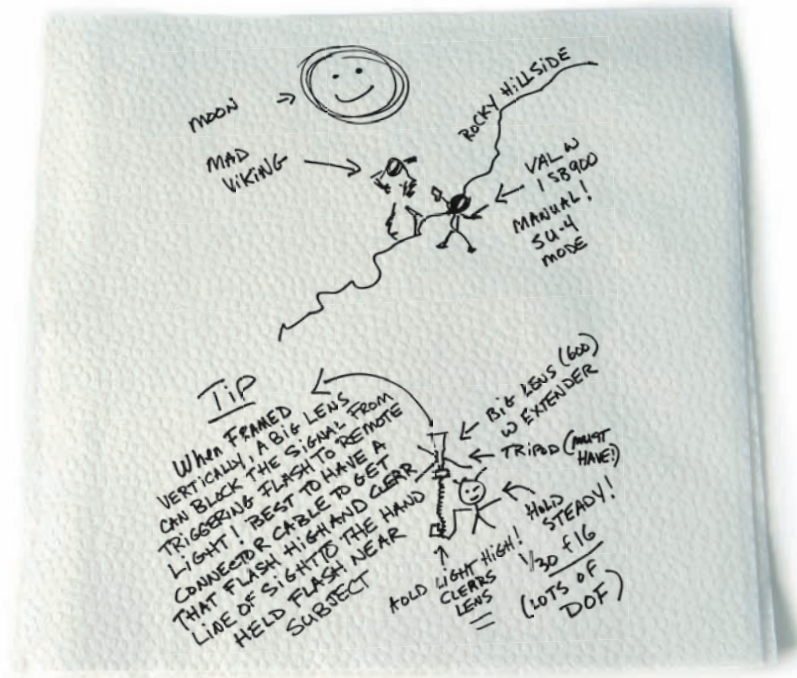 MOON
ROCKY HILLSIDE
MAD
VIKING
VAL W
1 SB900
MANUAL!
SU-4
MODE
TIP
WHEN FRAMED
VERTICALLY, A BIG LENS
CAN BLOCK THE SIGNAL FROM
TRIGGERING FLASH TO REMOTE
LIGHT! BEST TO HAVE A
CONNECTOR CABLE TO GET
THAT FLASH HIGH AND CLEAR
LINE OF SIGHT TO THE HAND
HELD FLASH NEAR
SUBJECT
BIG LENS (600)
W EXTENDER
TRIPOD (MUST
HAVE!)
HOLD
STEADY!
1/30 f16
(LOTS OF
DOF)
HOLD LIGHT HIGH!
CLEARS
LENS